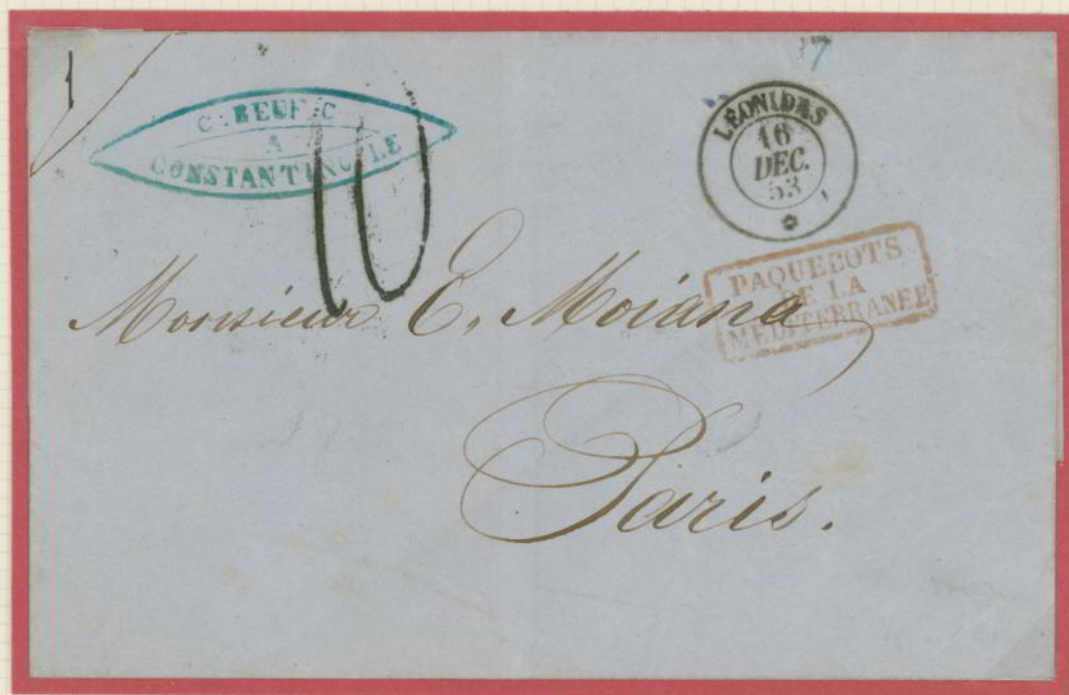 1
7
C. REUF C
A
CONSTANTINOPLE
10
LÉONIDAS
16
DÉC.
53
PAQUEBOTS
DE LA
MÉDITERRANÉE
Monsieur E. Moiana
Paris.